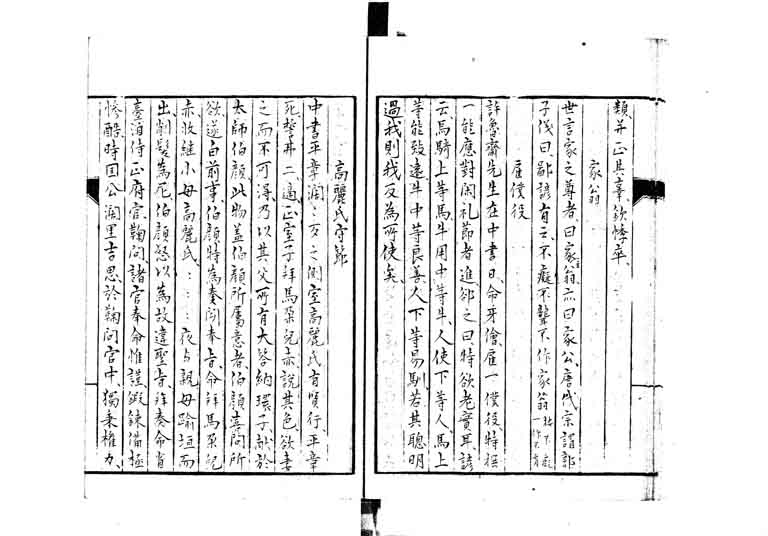 類并正其辜欽悖卒
家翁
世言家之尊者曰家翁亦曰家公唐代宗謂郭
子儀曰鄙諺有云不癡不聾不作家翁
雇僕役
許魯齋先生在中書日命牙儈雇一僕役特選
一能應對閑礼節者進却之曰特欲老實耳諺
云馬騎上等馬牛用中等牛人使下等人馬上
等能致遠牛中等良善人下等易馴若其聰明
過我則我反為所使矣
高麗氏守節
中書平章濶濶歹之側室高麗氏有賢行平章
死誓弗二適正室子拜馬朶兒赤說其色欲妻
之而不可得乃以其父所有大荅納環子獻於
太師伯顏此物蓋伯顏所屬意者伯顏喜問所
欲遂白前事伯顏特為奏聞奉旨命拜馬朶兒
赤收繼小母高麗氏高麗氏夜与親母踰垣而
出削髮為尼伯顏怒以為故違聖旨奏命省
臺洎侍正府官鞠問諸官奉命惟謹鍛鍊備極
慘酷時国公濶里吉思於鞠問官中獨秉權力